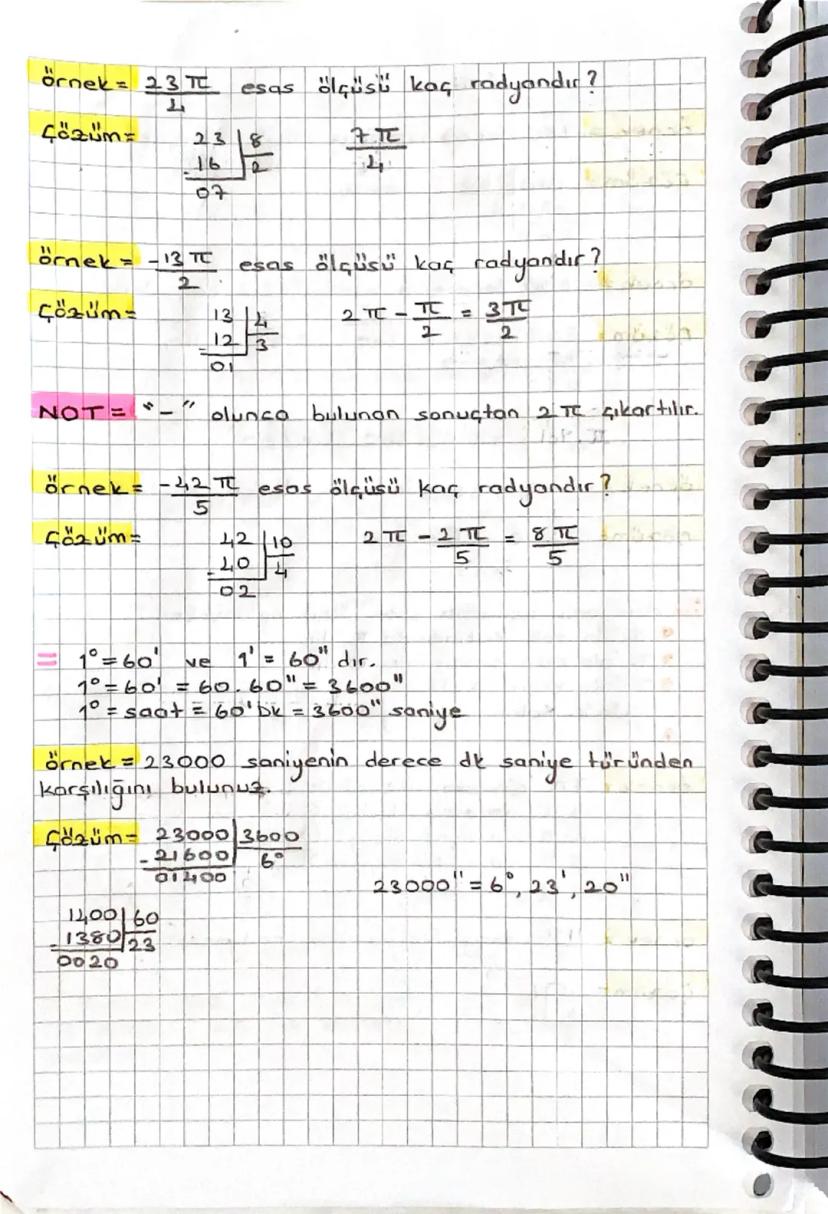 örnek = 23π/4 esas ölçüsü kaç radyandır?
Çözüm = 23 | 8 7π/4
-16 | 2
07
örnek = -13π/2 esas ölçüsü kaç radyandır?
Çözüm = 13 | 4 2π - π/2 = 3π/2
-12 | 3
01
NOT = "-" olunca bulunan sonuçtan 2π çıkartılır.
örnek = -42π/5 esas ölçüsü kaç radyandır?
Çözüm = 42 | 10 2π - 2π/5 = 8π/5
-40 | 4
02
= 1° = 60' ve 1' = 60" dır.
1° = 60' = 60.60" = 3600"
1° = saat = 60' dk = 3600" saniye
örnek = 23000 saniyenin derece dk saniye türünden
karşılığını bulunuz.
Çözüm = 23000 | 3600
-21600 | 6°
01400
23000" = 6°, 23', 20"
1400 | 60
-1380 | 23
0020